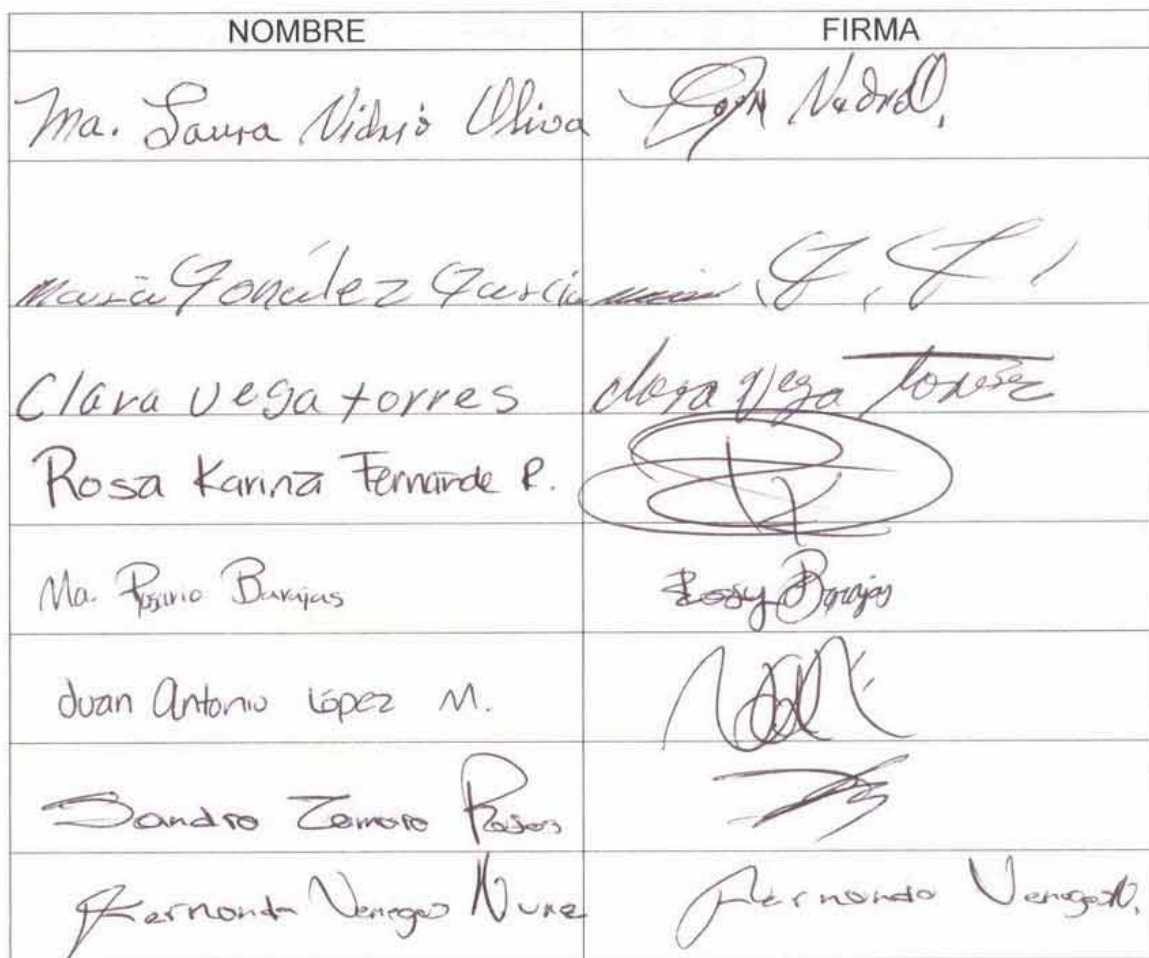 NOMBRE FIRMA
Ma. Laura Vidrio Oliva
María González García
Clara vega torres Clara Vega Torres
Rosa Karina Fernande R.
Ma. Rosario Barajas Rossy Barajas
Juan Antonio López M.
Sandro Zamora Rosas
Fernanda Venegas Nuñe Fernanda Venegas N.